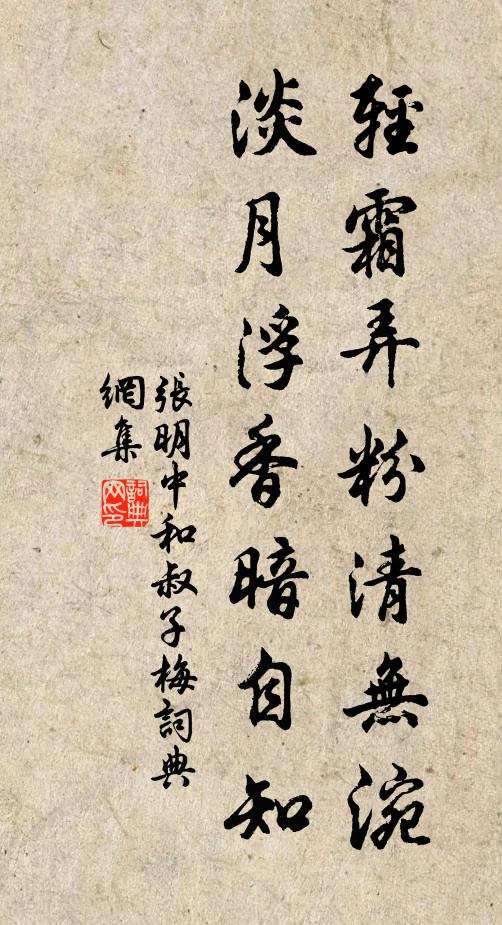 輕霜弄粉清無涴
淡月浮香暗自知
張明中和叔子梅詞典
網集
詞典
网印